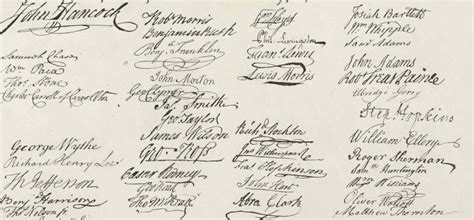 John Hancock
Samuel Chase
Wm Paca
Thos Stone
Charles Carroll of Carrollton
George Wythe
Richard Henry Lee
Th Jefferson
Benj Harrison
Thos Nelson jr
Robt Morris
Benjamin Rush
Benj Franklin
John Morton
Geo Clymer
Jas Smith
Geo Taylor
James Wilson
Geo Ross
Caesar Rodney
Geo Read
Tho M:Kean
Wm Floyd
Phil. Livingston
Frans Lewis
Lewis Morris
Richd Stockton
Jno Witherspoon
Fras Hopkinson
John Hart
Abra Clark
Josiah Bartlett
Wm Whipple
Saml Adams
John Adams
Robt Treat Paine
Elbridge Gerry
Step Hopkins
William Ellery
Roger Sherman
Sam el Huntington
Wm Williams
Oliver Wolcott
Matthew Thornton